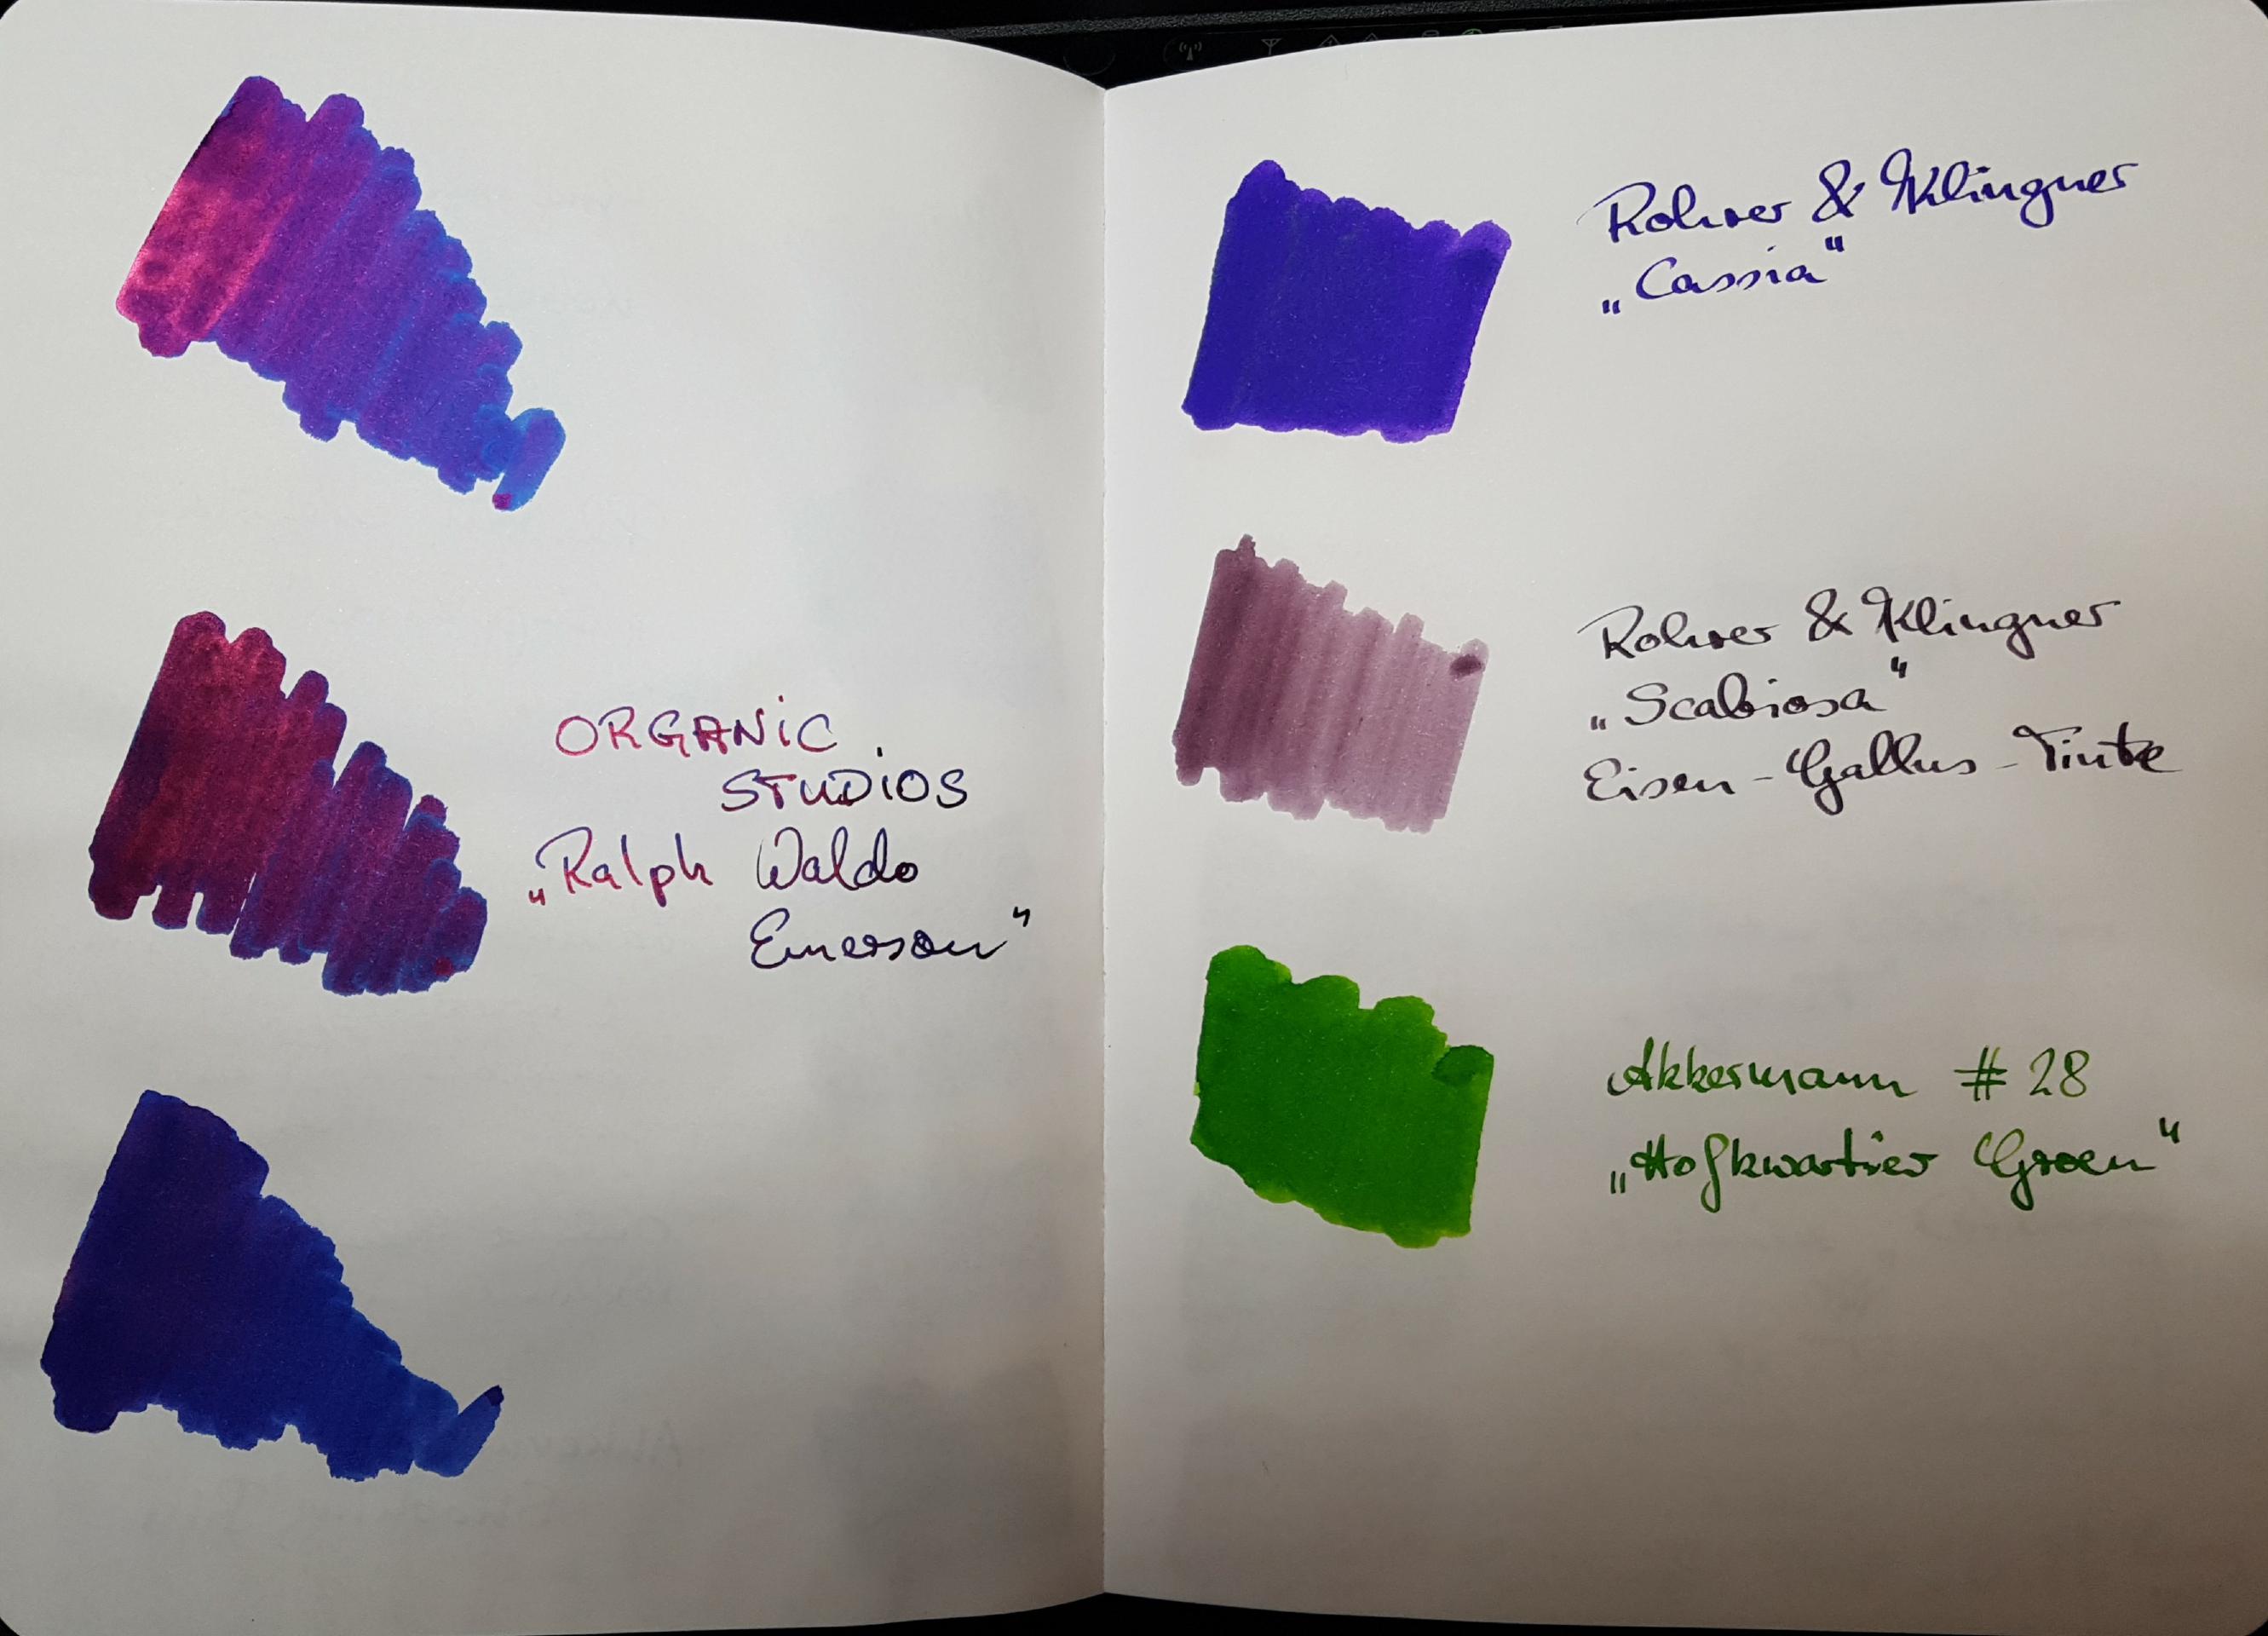 ORGANiC
STUDiOS
„Ralph Waldo
Emerson"
Rohrer & Klingner
„Cassia"
Rohrer & Klingner
„Scabiosa"
Eisen-Gallus-Tinte
Akkermann # 28
„Hofkwartier Groen"